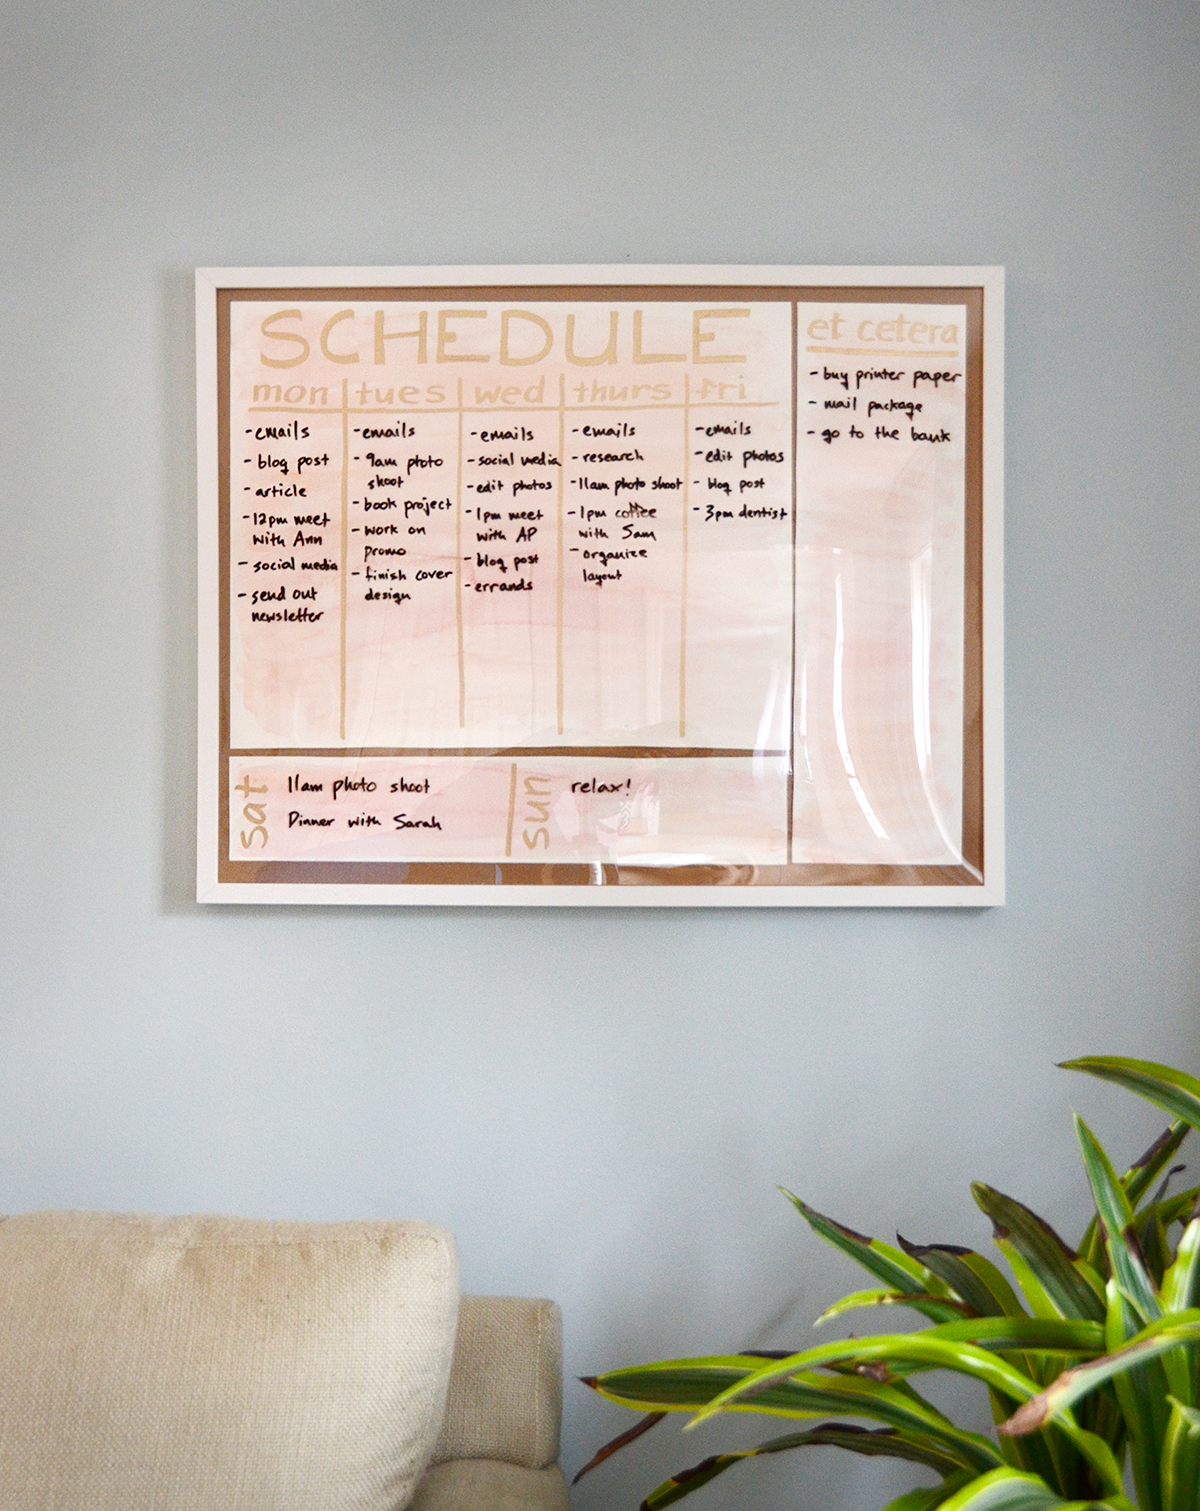 SCHEDULE
mon
-emails
- blog post
- article
-12pm meet
with Ann
- social media
- send out
newsletter
tues
-emails
- 9am photo
shoot
-book project
-work on
promo
- finish cover
design
wed
-emails
-social media
-edit photos
-1pm meet
with AP
- blog post
-errands
thurs
-emails
-research
-11am photo shoot
-1pm coffee
with Sam
-organize
layout
fri
-emails
-edit photos
- blog post
- 3pm dentist
et cetera
-buy printer paper
- mail package
- go to the bank
sat
11am photo shoot
Dinner with Sarah
sun
relax!